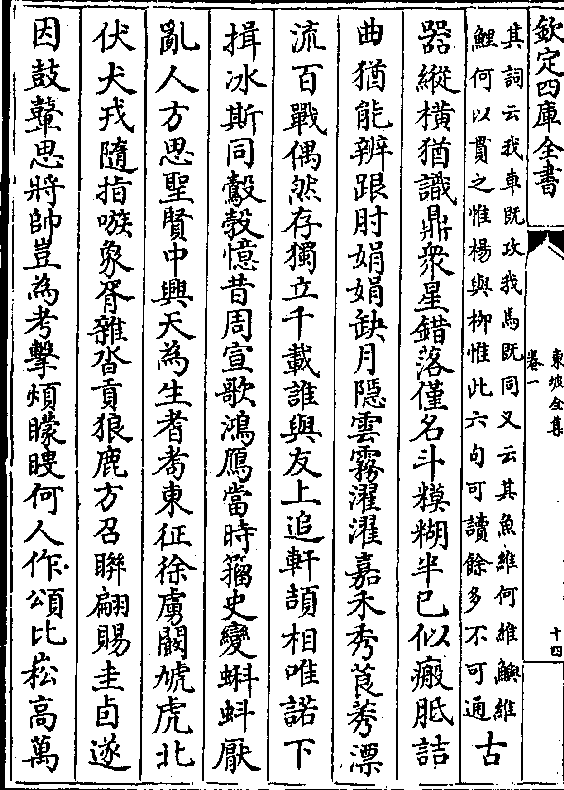 欽定四庫全書
東坡全集
卷一
十四
其詞云我車既攻我馬既同又云其魚維何維鱮維
鯉何以貫之惟楊與柳惟此六句可讀餘多不可通
古
器縱橫猶識鼎衆星錯落僅名斗糢糊半已似瘢胝詰
曲猶能辨跟肘娟娟缺月隱雲霧濯濯嘉禾秀莨莠漂
流百戰偶然存獨立千載誰與友上追軒頡相唯諾下
揖冰斯同鷇㝅憶昔周宣歌鴻鴈當時籀史變蝌蚪厭
亂人方思聖賢中興天為生耆耇東征徐虜闞虓虎北
伏犬戎隨指嗾象胥雜沓貢狼鹿方召聯翩賜圭卣遂
因鼓鼙思將帥豈為考擊煩矇瞍何人作頌比崧高萬